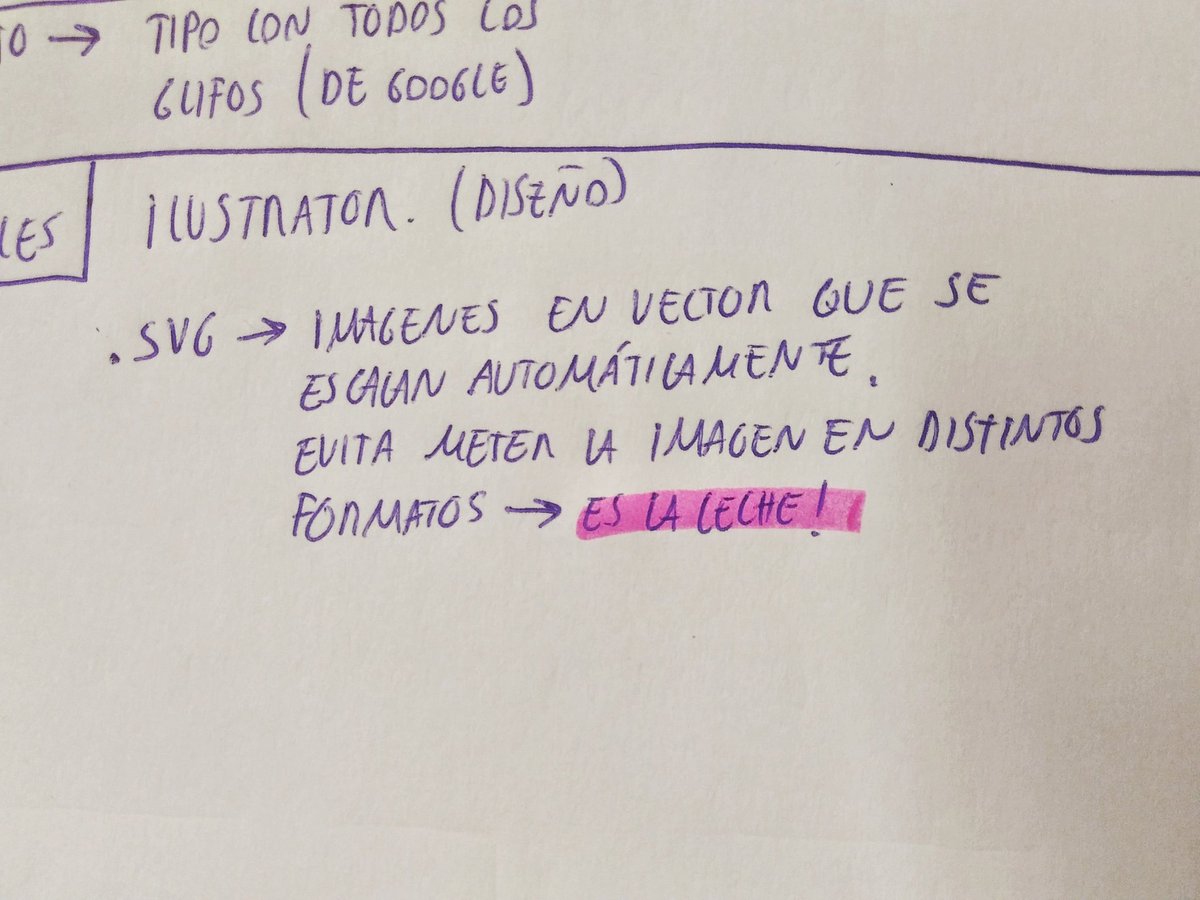 → TIPO CON TODOS LOS
GLIFOS (DE GOOGLE)
ILUSTRATOR. (DISEÑO)
.SVG → IMAGENES EN VECTOR QUE SE
ESCALAN AUTOMÁTICAMENTE.
EVITA METER LA IMAGEN EN DISTINTOS
FORMATOS → ES LA LECHE!